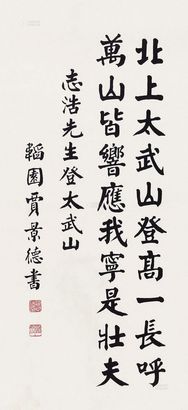 北上太武山登高一長呼
萬山皆響應我寧是壯夫
志浩先生登太武山
韜園賈景德書